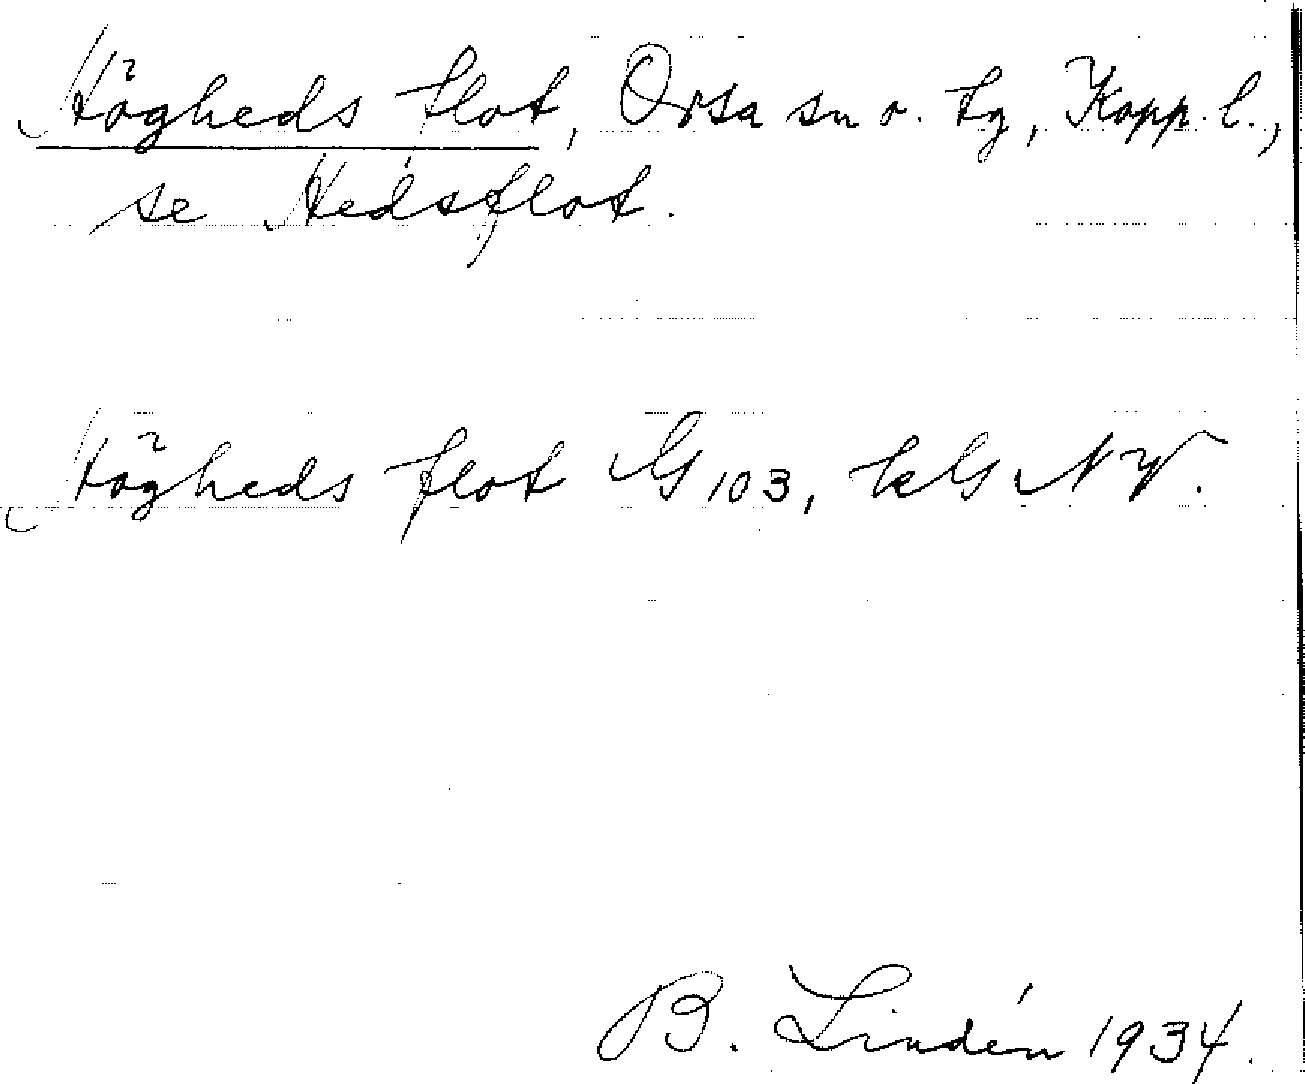 Högheds flot, Orsa sn o. tg, Kopp. l.,
se Hedsflot.
Högheds flot G 103, kG NV.
B. Lindén 1934.